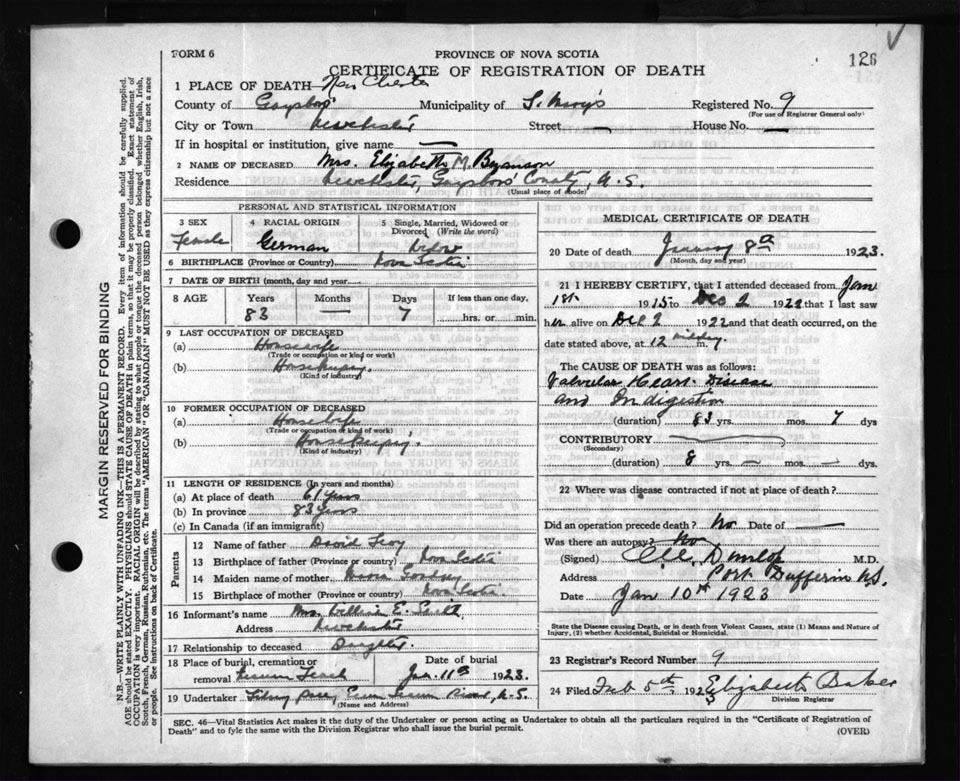 FORM 6
PROVINCE OF NOVA SCOTIA
126
CERTIFICATE OF REGISTRATION OF DEATH
1 PLACE OF DEATH New Chester
County of Guysboro' Municipality of St. Mary's Registered No. 9
(For use of Registrar General only)
City or Town Newchester Street — House No. —
If in hospital or institution, give name —
2 NAME OF DECEASED Mrs. Elizabeth M. Bezanson
Residence Newchester, Guysboro' County, N.S.
(Usual place of abode)
PERSONAL AND STATISTICAL INFORMATION
3 SEX 4 RACIAL ORIGIN 5 Single, Married, Widowed or Divorced (Write the word)
Female German Widow
6 BIRTHPLACE (Province or Country) Nova Scotia
7 DATE OF BIRTH (month, day and year)
8 AGE Years Months Days If less than one day,
83 — 7 hrs. or min.
9 LAST OCCUPATION OF DECEASED
(a) Housewife
(Trade or occupation or kind or work)
(b) Housekeeping
(Kind of industry)
10 FORMER OCCUPATION OF DECEASED
(a) Housewife
(Trade or occupation or kind of work)
(b) Housekeeping
(Kind of industry)
11 LENGTH OF RESIDENCE (In years and months)
(a) At place of death 61 years
(b) In province 83 years
(c) In Canada (if an immigrant)
Parents
12 Name of father David
13 Birthplace of father (Province or country) Nova Scotia
14 Maiden name of mother
15 Birthplace of mother (Province or country) Nova Scotia
16 Informant's name Mrs. William E. Smith
Address Newchester
17 Relationship to deceased Daughter
18 Place of burial, cremation or removal Date of burial
Jan. 11th 1923.
19 Undertaker N.S.
(Name and Address)
MEDICAL CERTIFICATE OF DEATH
20 Date of death January 8th 1923.
(Month, day and year)
21 I HEREBY CERTIFY, that I attended deceased from Jan
1st 1915 to Dec 2 1922 that I last saw
her alive on Dec 2 1922 and that death occurred, on the
date stated above, at 12 midday m.
The CAUSE OF DEATH was as follows:
Valvular Heart Disease
and Indigestion
(duration) 83 yrs. mos. 7 dys
CONTRIBUTORY
(Secondary)
(duration) 8 yrs. — mos. — dys.
22 Where was disease contracted if not at place of death?
Did an operation precede death? No Date of —
Was there an autopsy? No
(Signed) Dunlop M.D.
Address Port Dufferin N.S.
Date Jan 10th 1923
State the Disease causing Death, or in death from Violent Causes, state (1) Means and Nature of Injury, (2) whether Accidental, Suicidal or Homicidal.
23 Registrar's Record Number 9
24 Filed Feb 5th 1923 Elizabeth Baker
Division Registrar
SEC. 46—Vital Statistics Act makes it the duty of the Undertaker or person acting as Undertaker to obtain all the particulars required in the "Certificate of Registration of
Death" and to fyle the same with the Division Registrar who shall issue the burial permit.
(OVER)
MARGIN RESERVED FOR BINDING
N.B.—WRITE PLAINLY WITH UNFADING INK—THIS IS A PERMANENT RECORD. Every item of information should be carefully supplied.
AGE should be stated EXACTLY. PHYSICIANS should STATE CAUSE OF DEATH in plain terms, so that it may be properly classified. Exact statement of
OCCUPATION is very important. RACIAL ORIGIN will be described by stating to what people or tongue the deceased person belonged whether English, Irish,
Scotch, French, German, Russian, Ruthenian, etc. The terms "AMERICAN" OR "CANADIAN" MUST NOT BE USED as they express citizenship but not a race
or people. See instructions on back of Certificate.